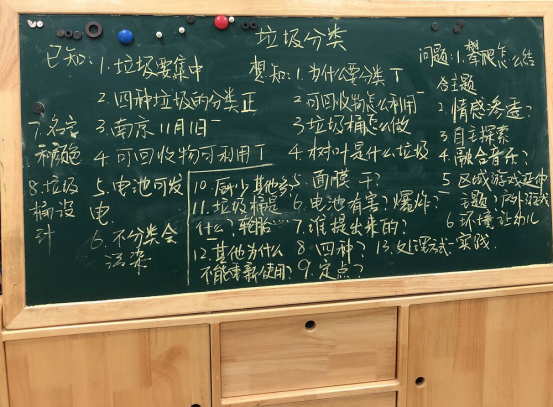 垃圾分类
已知：1.垃圾要集中
2.四种垃圾的分类正
3.南京11月1日一
4.可回收物可利用丅
5.电池可发
电
6.不分类会
污染
7.名字
和颜色
8.垃圾
桶设
计
想知：1.为什么要分类丅
2.可回收物怎么利用一
3.垃圾桶怎么做
4.树叶是什么垃圾
5.面膜 干？
6.电池有害？爆炸？
7.谁提出来的？
8.四种？
9.定点？
10.厨少其他多？
11.垃圾桶是
什么？轮胎
12.其他为什么
不能重新使用？
13.处理方式
问题：1.攀爬怎么结
合主题
2.情感渗透？
3.自主探索
4.融合音乐？
5.区域游戏延伸
主题？户外游戏
6.环境让幼儿
实践.